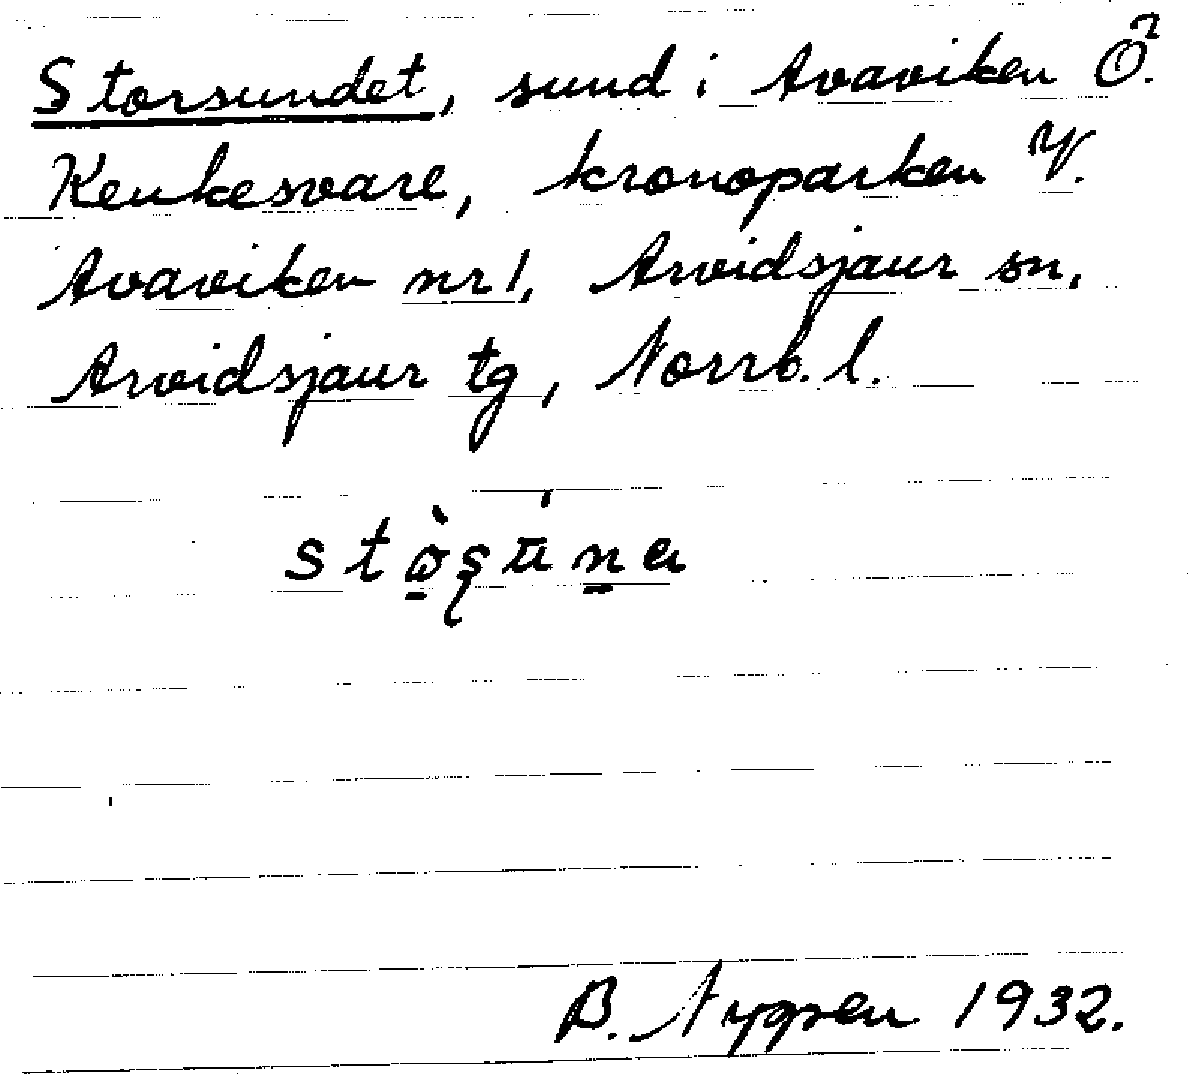 Storsundet, sund i Avaviken Ö.
Keukesvare, kronoparken V.
Avaviken nr 1, Arvidsjaur sn,
Arvidsjaur tg, Norrb. l.
B. 1932.